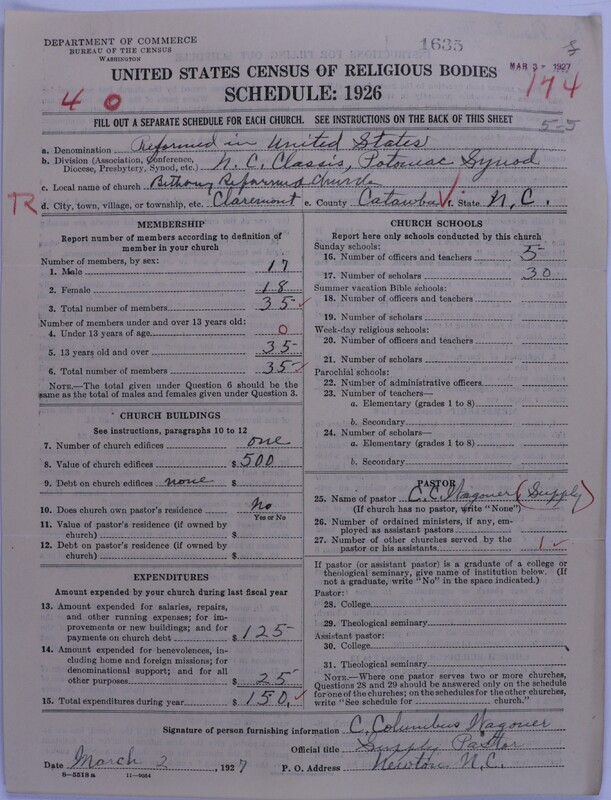 DEPARTMENT OF COMMERCE
BUREAU OF THE CENSUS
WASHINGTON
1635
MAR 3 - 1927
UNITED STATES CENSUS OF RELIGIOUS BODIES
SCHEDULE: 1926
4 0
174
FILL OUT A SEPARATE SCHEDULE FOR EACH CHURCH. SEE INSTRUCTIONS ON THE BACK OF THIS SHEET
5-5
a. Denomination Reformed in United States
b. Division (Association, Conference, Diocese, Presbytery, Synod, etc.) N.C. Classis, Potomac Synod
c. Local name of church Bethany Reformed Church
R d. City, town, village, or township, etc. Claremont e. County Catawba f. State N.C.
MEMBERSHIP
Report number of members according to definition of member in your church
Number of members, by sex:
1. Male 17
2. Female 18
3. Total number of members 35
Number of members under and over 13 years old:
4. Under 13 years of age 0
5. 13 years old and over 35
6. Total number of members 35
NOTE.—The total given under Question 6 should be the same as the total of males and females given under Question 3.
CHURCH BUILDINGS
See instructions, paragraphs 10 to 12
7. Number of church edifices one
8. Value of church edifices $ 500
9. Debt on church edifices none $
10. Does church own pastor's residence No
Yes or No
11. Value of pastor's residence (if owned by church) $
12. Debt on pastor's residence (if owned by church) $
EXPENDITURES
Amount expended by your church during last fiscal year
13. Amount expended for salaries, repairs, and other running expenses; for improvements or new buildings; and for payments on church debt $ 125
14. Amount expended for benevolences, including home and foreign missions; for denominational support; and for all other purposes $ 25
15. Total expenditures during year $ 150.
CHURCH SCHOOLS
Report here only schools conducted by this church
Sunday schools:
16. Number of officers and teachers 5
17. Number of scholars 30
Summer vacation Bible schools:
18. Number of officers and teachers
19. Number of scholars
Week-day religious schools:
20. Number of officers and teachers
21. Number of scholars
Parochial schools:
22. Number of administrative officers
23. Number of teachers—
a. Elementary (grades 1 to 8)
b. Secondary
24. Number of scholars—
a. Elementary (grades 1 to 8)
b. Secondary
PASTOR
25. Name of pastor C. C. Wagoner (Supply)
(If church has no pastor, write "None")
26. Number of ordained ministers, if any, employed as assistant pastors
27. Number of other churches served by the pastor or his assistants 1
If pastor (or assistant pastor) is a graduate of a college or theological seminary, give name of institution below. (If not a graduate, write "No" in the space indicated.)
Pastor:
28. College
29. Theological seminary
Assistant pastor:
30. College
31. Theological seminary
NOTE.—Where one pastor serves two or more churches, Questions 28 and 29 should be answered only on the schedule for one of the churches; on the schedules for the other churches, write "See schedule for church."
Signature of person furnishing information C. Columbus Wagoner
Official title Supply Pastor
Date March 2, 1927 P. O. Address Newton N.C.
8-5518a 11-9064